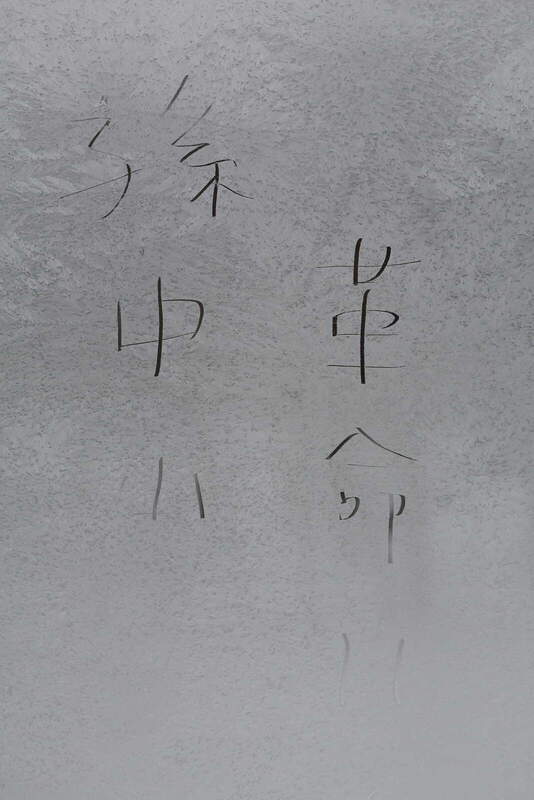 革命
孫中